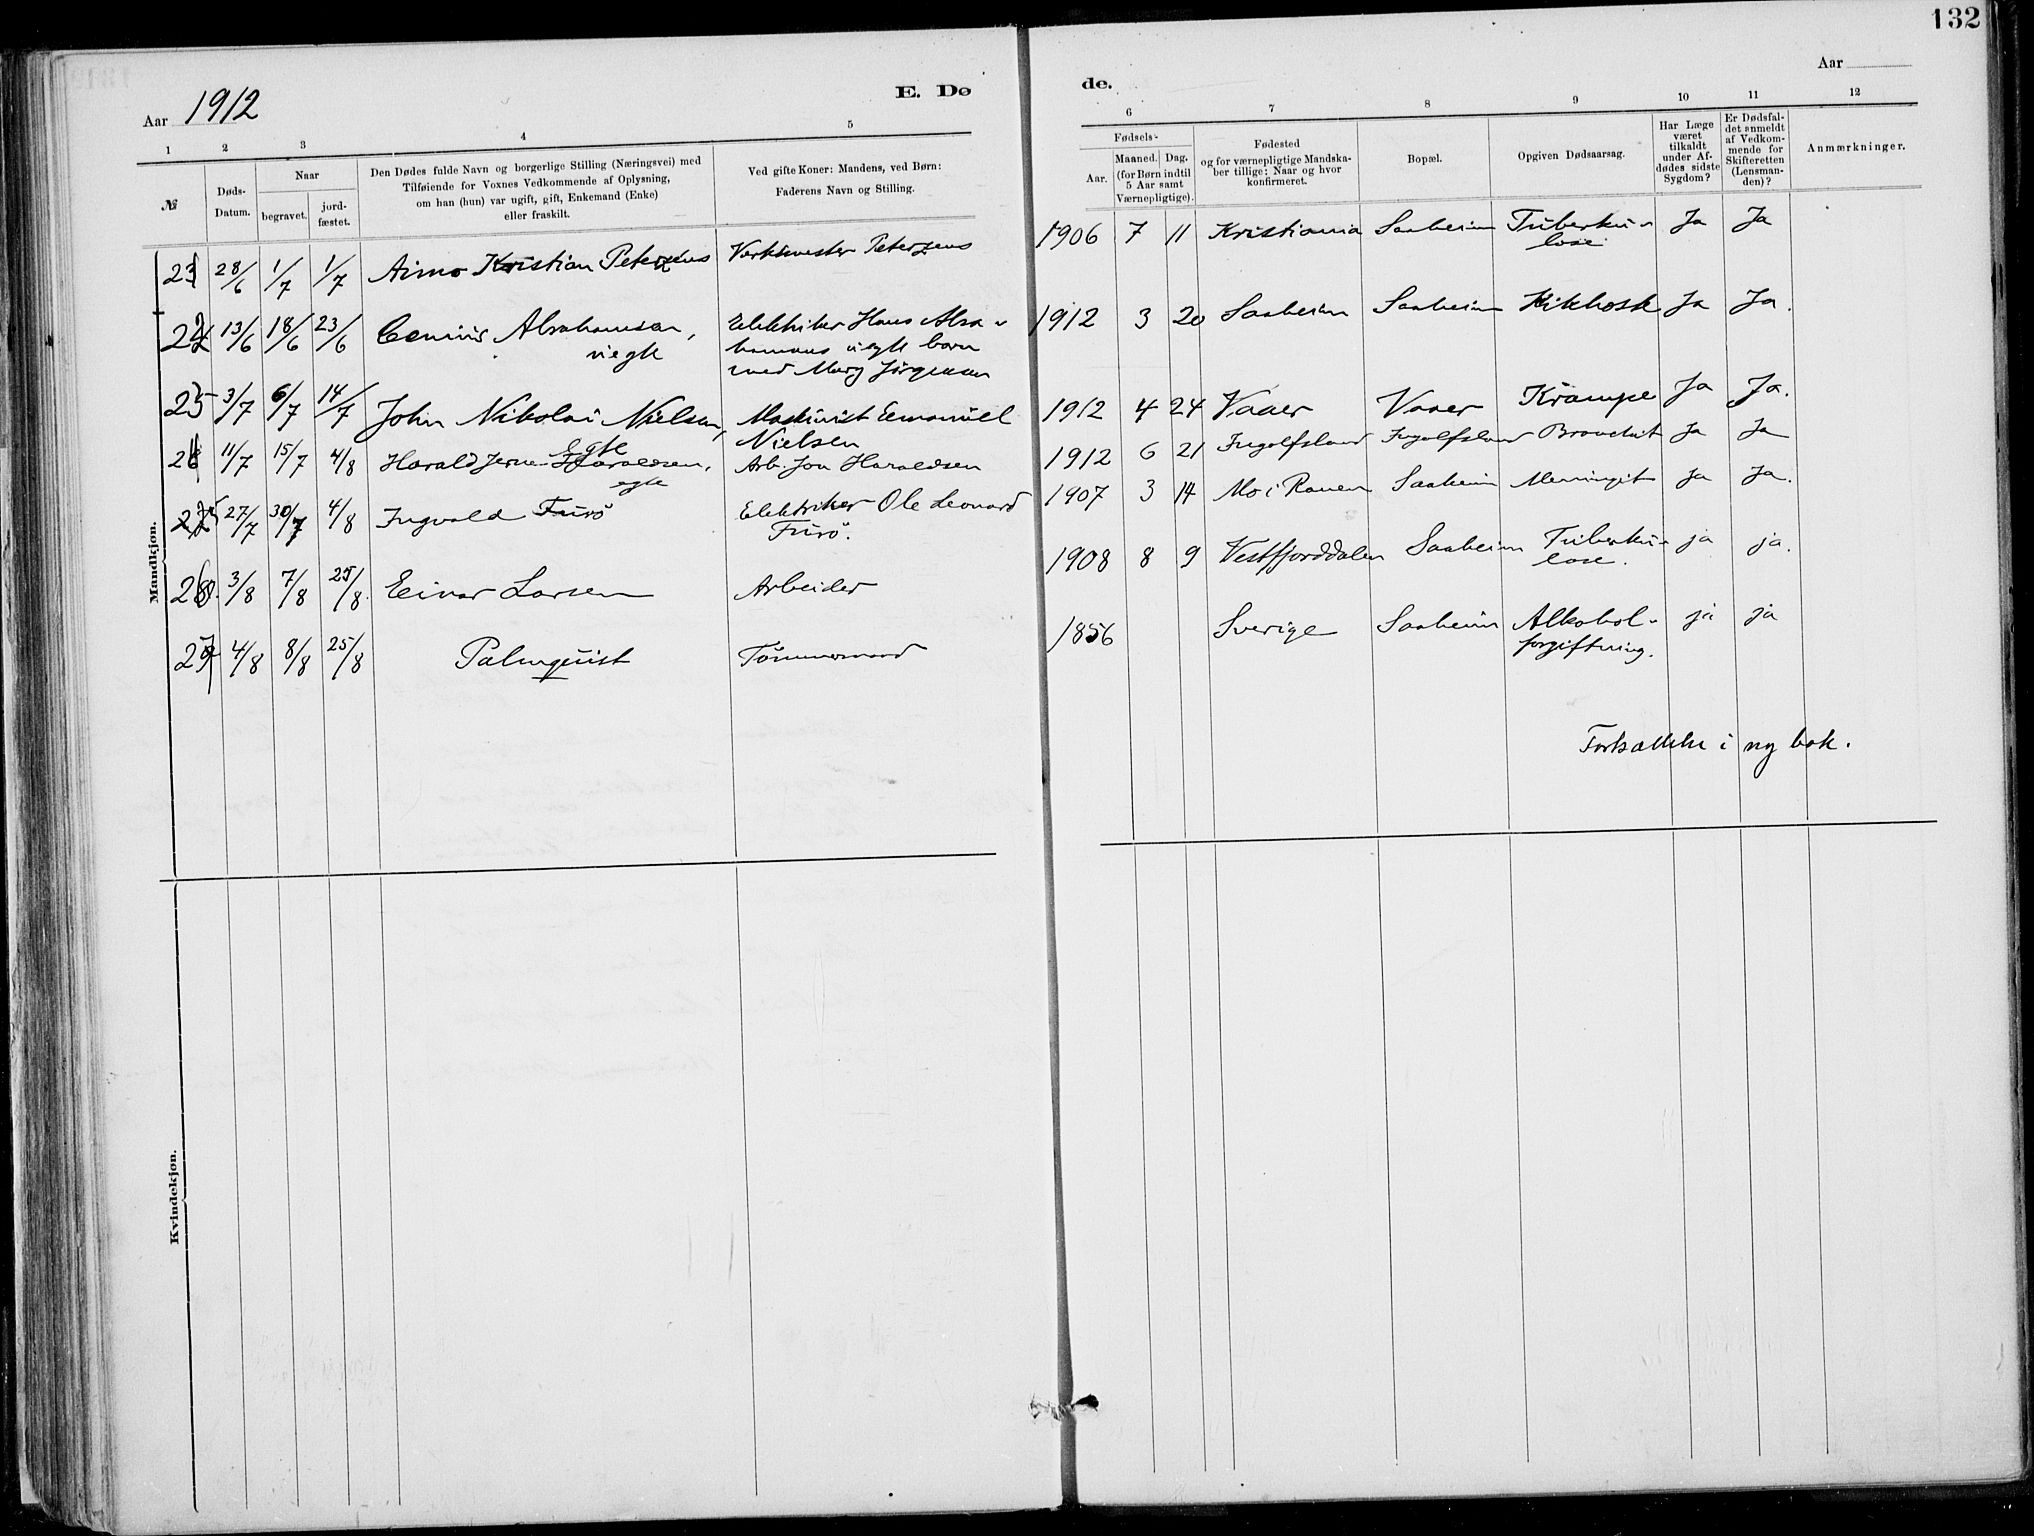 132
Aar 1912
E. Dø
de.
Aar
1 2 3 4 5
6 7 8 9 10 11 12
№
Døds-
Datum.
Naar
begravet.
jord-
fæstet.
Den Dødes fulde Navn og borgerlige Stilling (Næringsvei) med
Tilføiende for Voxnes Vedkommende af Oplysning,
om han (hun) var ugift, gift, Enkemand (Enke)
eller fraskilt.
Ved gifte Koner: Mandens, ved Børn:
Faderens Navn og Stilling.
Fødsels-
Aar.
Maaned. Dag.
(for Børn indtil
5 Aar samt
Værnepligtige).
Fødested
og for værnepligtige Mandska-
ber tillige: Naar og hvor
konfirmeret.
Bopæl.
Opgiven Dødsaarsag.
Har Læge
været
tilkaldt
under Af-
dødes sidste
Sygdom?
Er Dødsfal-
det anmeldt
af Vedkom-
mende for
Skifteretten
(Lensman-
den)?
Anmærkninger.
Mandkjøn.
23 28/6 1/7 1/7 Aimo Kristian Petersens Verkmester Petersens
1906 7 11 Kristiania Saaheim Tuberku-
lose Ja Ja
13/6 18/6 23/6 Abrahamsen, Elektriker Hans Abra-
uegte hamsens uegte barn
med Mary Jørgensen
1912 3 20 Saaheim Saaheim Kikhoste Ja Ja.
25 3/7 6/7 14/7 John Nikolai Nielsen, Maskinist Emanuel
egte Nielsen
1912 4 24 Vaaer Vaaer Krampe Ja Ja.
26 11/7 15/7 4/8 Harald Haraldsen, Arb. Jon Haraldsen
egte
1912 6 21 Ingolfsland Ingolfsland Bronchit Ja Ja
27 27/7 30/7 4/8 Ingvald Furö Elektriker Ole Leonard
Furö.
1907 3 14 Mo i Ranen Saaheim Meningit Ja Ja.
28. 3/8 7/8 25/8. Einar Larsen Arbeider
1908 8 9 Vestfjorddalen Saaheim Tuberku-
lose. ja ja.
29 4/8 8/8 25/8 Palmquist Tömmermand
1856 Sverige Saaheim Alkohol-
forgiftning. ja ja
Fortsættes i ny bok.
Kvindekjøn.